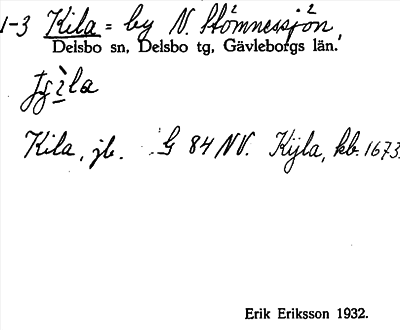 1-3 Kila = by N. Stömnessjön,
Delsbo sn, Delsbo tg, Gävleborgs län.
Kila, jb. G 84 NV. Kijla, kb. 1673.
Erik Eriksson 1932.